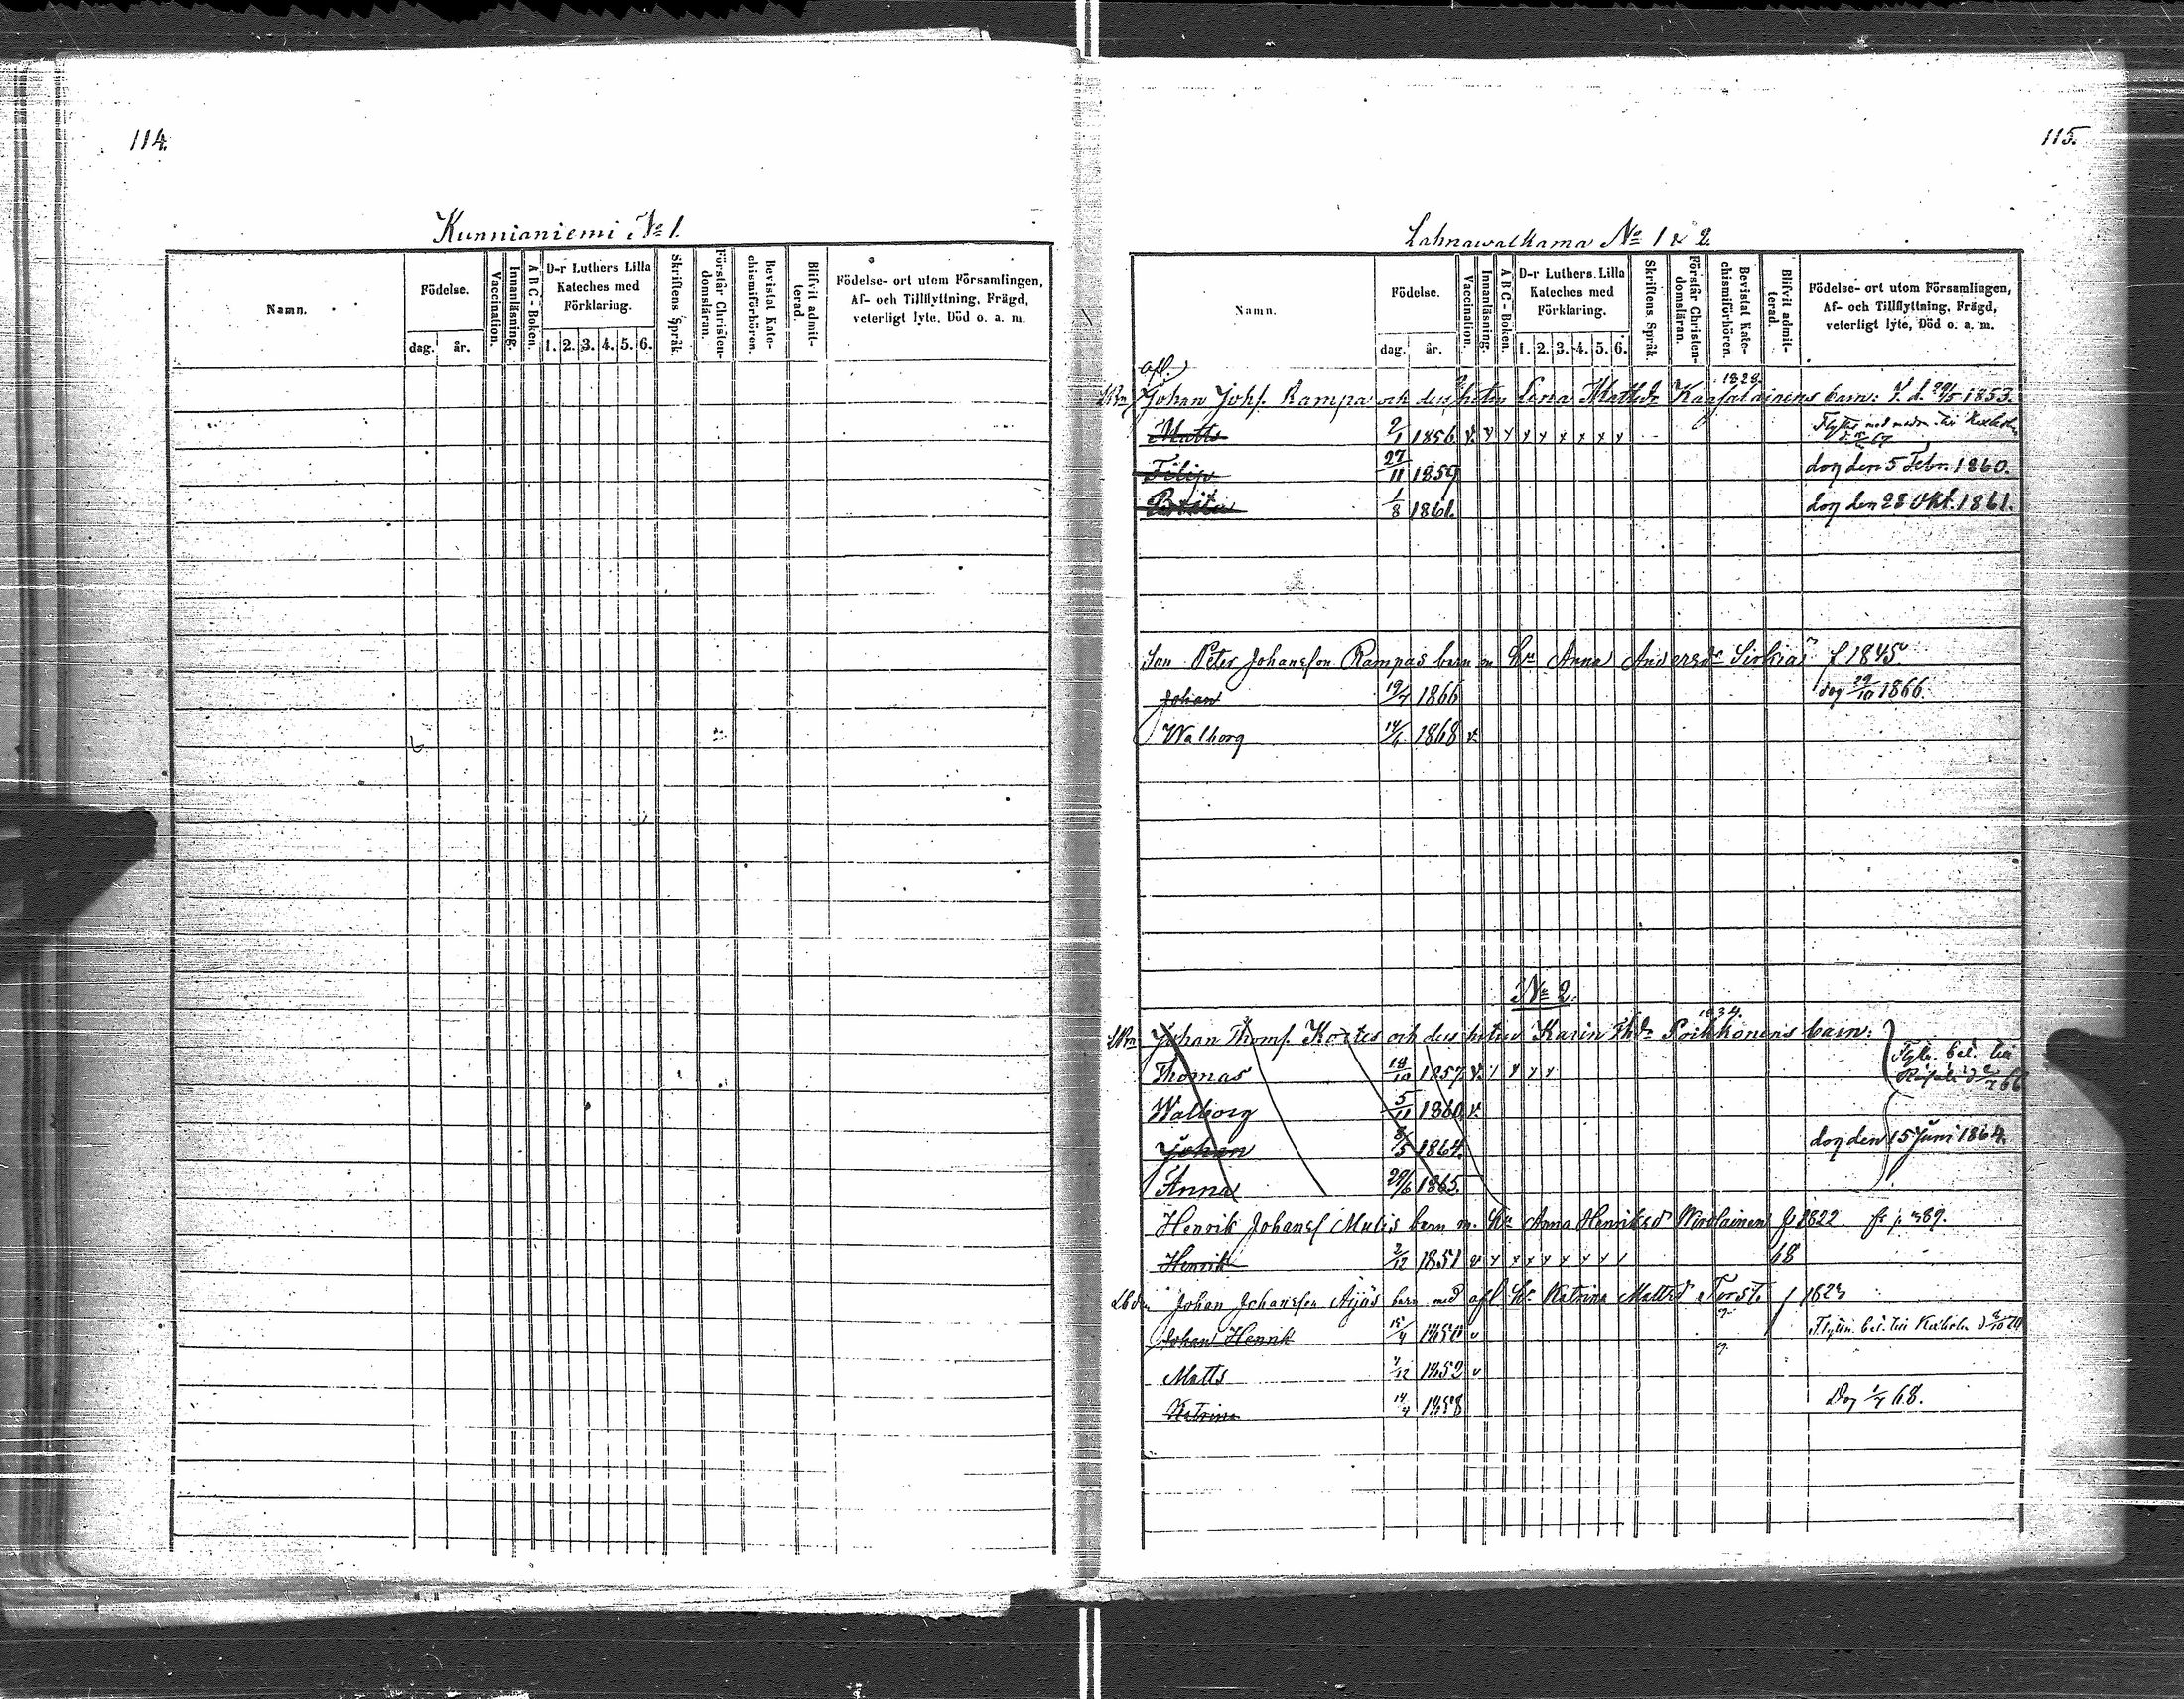 114.
Kunnianiemi No 1.
Namn.
Födelse.
dag. år.
Vaccination.
Innanläsning.
ABC-Boken.
D-r Luthers Lilla
Kateches med
Förklaring.
1. 2. 3. 4. 5. 6.
Skriftens Språk.
Förstår Christen-
domsläran.
Bevistat Kate-
chismiförhören.
Blifvit admit-
terad.
Födelse- ort utom Församlingen,
Af- och Tillflyttning, Frägd,
veterligt lyte, Död o. a. m.
115.
Lahnawalkama No 1 & 2.
Namn.
Födelse.
dag. år.
Vaccination.
Innanläsning.
ABC-Boken.
D-r Luthers Lilla
Kateches med
Förklaring.
1. 2. 3. 4. 5. 6.
Skriftens Språk.
Förstår Christen-
domsläran.
Bevistat Kate-
chismiförhören.
Blifvit admit-
terad.
Födelse- ort utom Församlingen,
Af- och Tillflyttning, Frägd,
veterligt lyte, Död o. a. m.
afl.
1828
Johan Johs. Rampa och dess Lena Mattsdr barn: 1853.
Matts 2/1 1856 v. x x x x x x x x
Filip 27/11 1859 dog den 5 Febr. 1860.
1/8 1861. dog den 28 Okt. 1861.
Son Peter Johansson Rampas barn m Hu Anna Andersdr Sirkiä f 1845
Johan 19/7 1866 dog 29/10 1866.
Walborg 14/6 1868 v.
No 2.
1834.
Johan Thoms. Kortes och dess Karin Thdr Poikkonens barn:
Thomas 18/10 1857 v.
Walborg 5/11 1860 v.
Johan 8/5 1864. dog den 15 Juni 1864.
Anna 20/6 1865.
Henrik Johans Mulis barn m. Hu Anna Henriksdr Wirolainen f 1822. fr p. 389.
Henrik 2/12 1851 68
Johan Johansson Äijäs barn med afl Hu Katrina Mattsd Torsti f 1823
Johan Henrik 15/4 1850 v
Matts 1852 v
Katrina 14/4 1858 Dog 1/4 68.